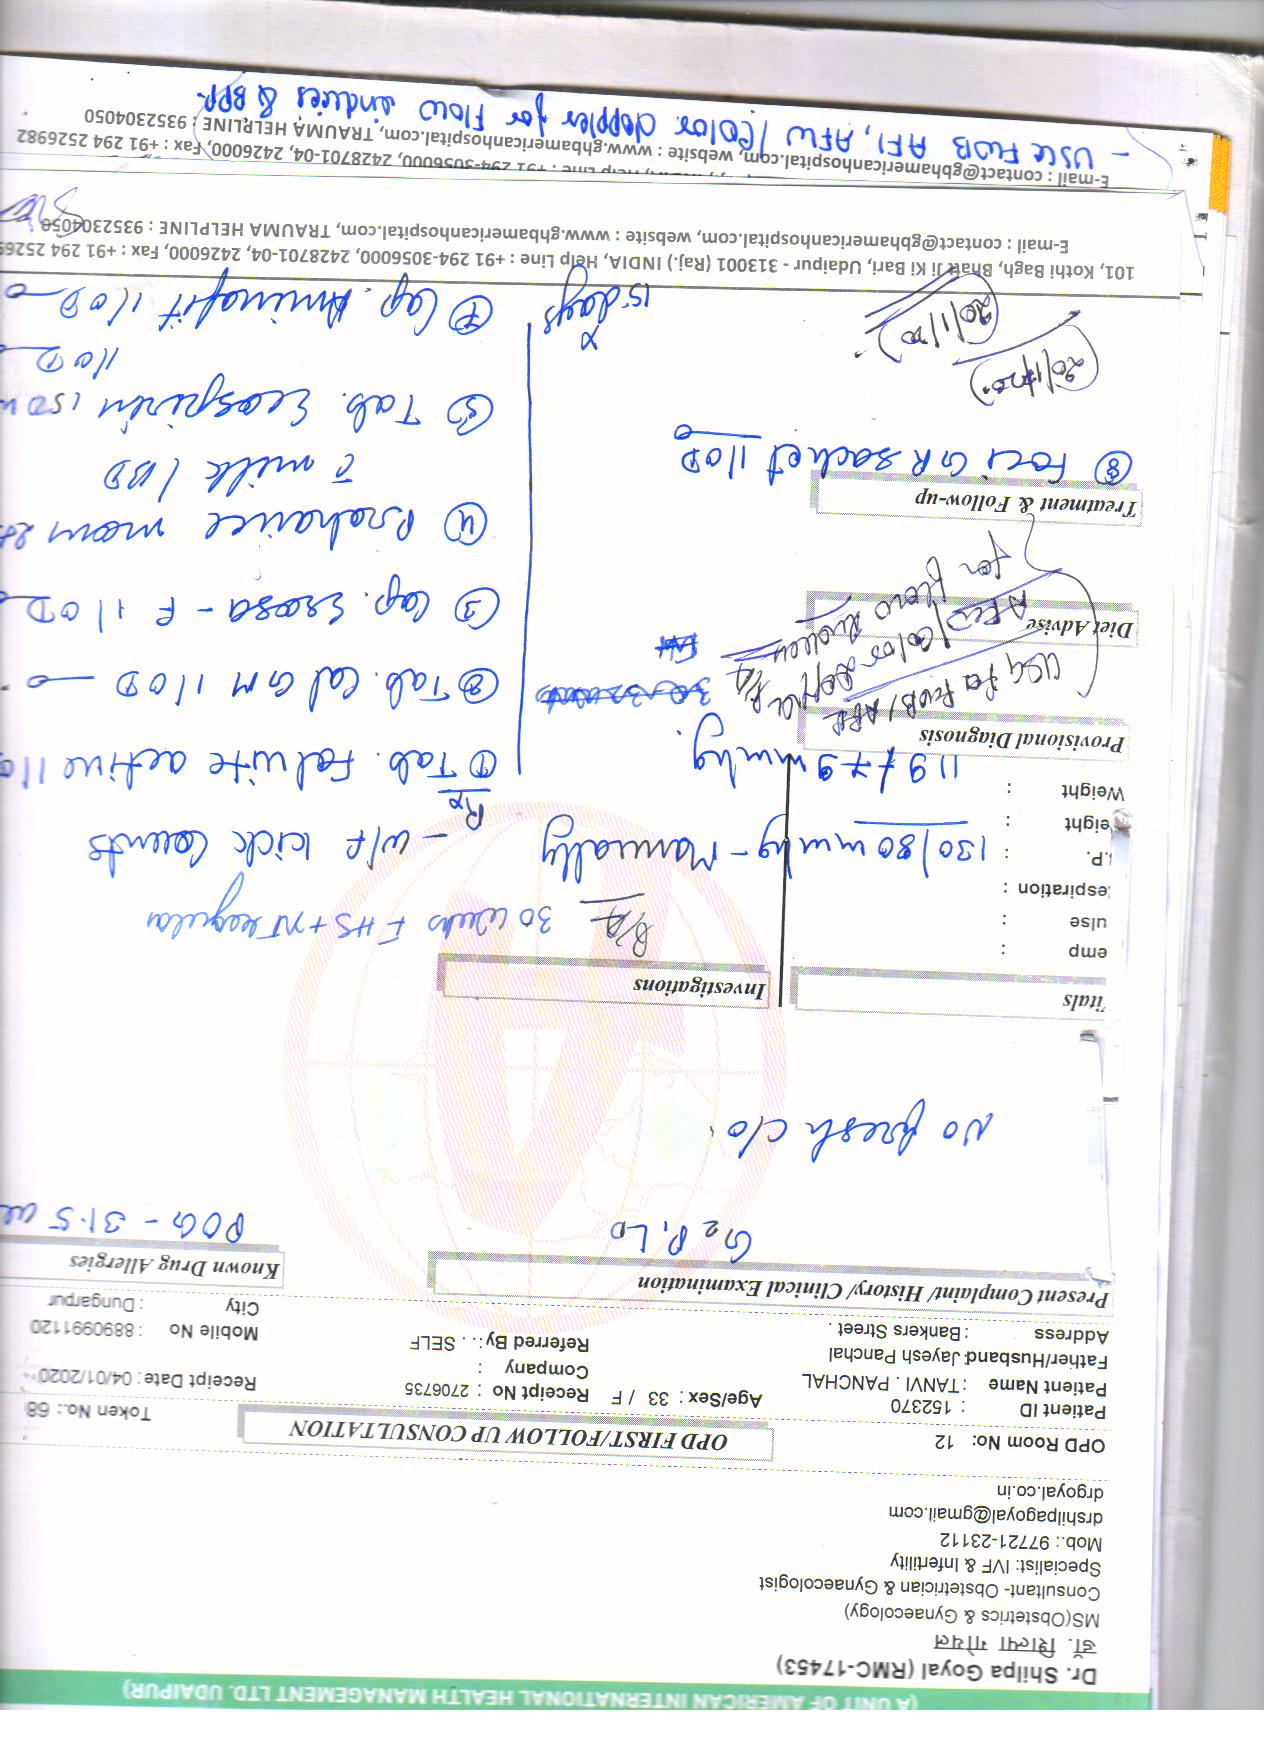 (A UNIT OF AMERICAN INTERNATIONAL HEALTH MANAGEMENT LTD. UDAIPUR)
Dr. Shilpa Goyal (RMC-17453)
डॉ. शिल्पा गोयल
MS(Obstetrics & Gynaecology)
Consultant- Obstetrician & Gynaecologist
Specialist: IVF & Infertility
Mob.: 97721-23112
drshilpagoyal@gmail.com
drgoyal.co.in
OPD Room No: 12
OPD FIRST/FOLLOW UP CONSULTATION
Token No.: 68
Patient ID : 152370
Patient Name : TANVI . PANCHAL
Age/Sex : 33 / F
Receipt No : 2706735
Receipt Date : 04/01/2020
Father/Husband: Jayesh Panchal
Company :
Mobile No : 8890991120
Address : Bankers Street .
Referred By : . . SELF
City : Dungarpur
Present Complaint/ History/ Clinical Examination
Known Drug Allergies
G2 P1 L0
POG - 31.5
No fresh c/o
itals
Investigations
emp :
ulse :
espiration :
.P. : 130/80 mmhg - Manually
eight :
Weight : 119/79 mmhg.
P/A 30 weeks FHS + NT regular
- w/f kick counts
Rx
Provisional Diagnosis
Diet Advise
USG for FWB/AFI
AFW/Color doppler
for flow indices
Treatment & Follow-up
① Tab. Falwite active 1 OD
② Tab. Cal GM 1 OD
③ Cap. Esosa - F 1 OD
④ Prohance mom
c milk / BD
⑤ Tab. Ecosprin 150
1 OD
⑦ Cap. Aminofit 1 OD
⑧ Foci GR sachet 1 OD
x
15 days
20/1/20
20/1/20
101, Kothi Bagh, Bhatt Ji Ki Bari, Udaipur - 313001 (Raj.) INDIA, Help Line : +91 294-3056000, 2428701-04, 2426000, Fax : +91 294 25269
E-mail : contact@gbhamericanhospital.com, website : www.gbhamericanhospital.com, TRAUMA HELPLINE : 9352304050
Help Line : +91 294-3056000, 2428701-04, 2426000, Fax : +91 294 2526982
E-mail : contact@gbhamericanhospital.com, website : www.gbhamericanhospital.com, TRAUMA HELPLINE : 9352304050
- USG FWB AFI, AFW / Color doppler for flow indices & BPP.